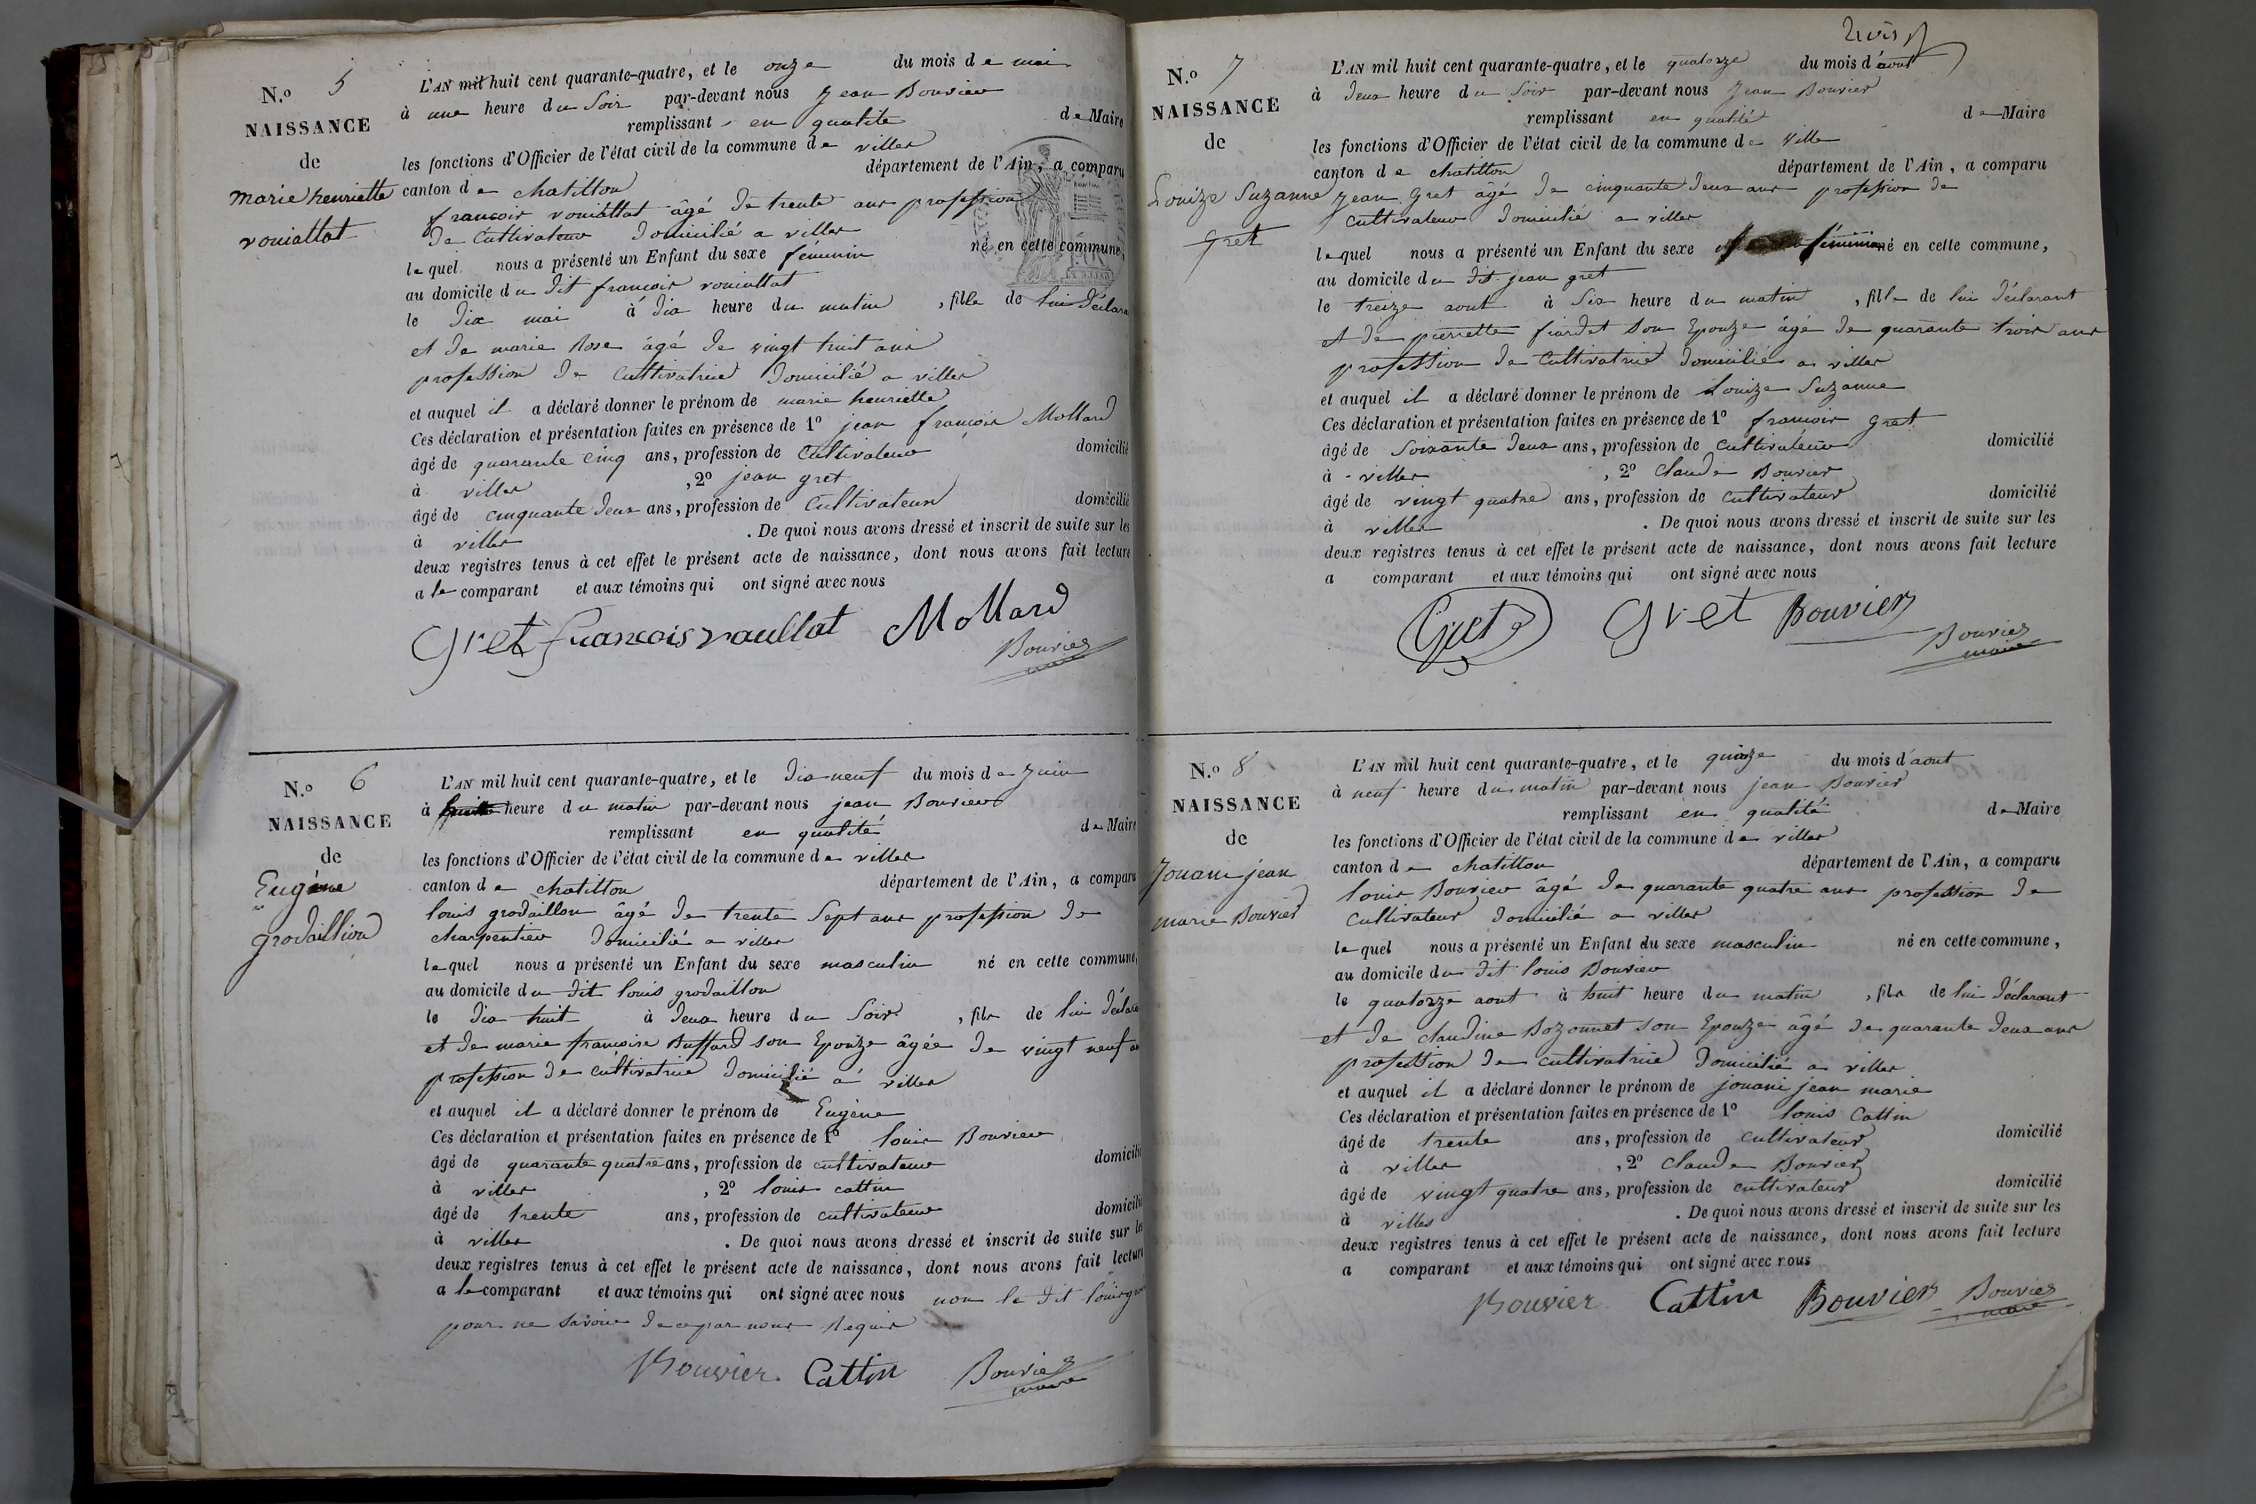 N.º 5
NAISSANCE
de
marie henriette
rouiallat
L'AN mil huit cent quarante-quatre, et le onze du mois de mai
à une heure du Soir par-devant nous jean Bouvier
remplissant en qualité de Maire
les fonctions d'Officier de l'état civil de la commune de viller
canton de chatillon département de l'Ain, a comparu
francois rouiallat âgé de trente ans profession
de Cultivateur domicilié a viller
lequel nous a présenté un Enfant du sexe féminin né en cette commune,
au domicile du dit francois rouiallat
le dix mai à dix heure du matin , fille de lui déclara
et de marie Rose âgé de vingt huit ans
profession de Cultivatrice domicilié a viller
et auquel il a déclaré donner le prénom de marie henriette
Ces déclaration et présentation faites en présence de 1º jean françois Mollard
âgé de quarante cinq ans, profession de Cultivateur domicilié
à viller , 2º jean gret
âgé de cinquante deux ans, profession de Cultivateur domicilié
à viller . De quoi nous avons dressé et inscrit de suite sur les
deux registres tenus à cet effet le présent acte de naissance, dont nous avons fait lecture
a le comparant et aux témoins qui ont signé avec nous
Gret francois roullat Mollard
Bouvier
maire
N.º 6
NAISSANCE
de
Eugéne
grodaillion
L'AN mil huit cent quarante-quatre, et le dix neuf du mois de Juin
à heure du matin par-devant nous jean Bouvier
remplissant en qualité de Maire
les fonctions d'Officier de l'état civil de la commune de viller
canton de chatillon département de l'Ain, a comparu
louis grodaillon âgé de trente Sept ans profession de
charpentier domicilié a viller
lequel nous a présenté un Enfant du sexe masculin né en cette commune,
au domicile du dit louis grodaillon
le dix huit à deux heure du Soir , fils de lui déclara
et de marie francoise Buffard son Epouze âgée de vingt neuf an
profession de cultivatrice domicilié a viller
et auquel il a déclaré donner le prénom de Eugène
Ces déclaration et présentation faites en présence de 1º louis Bouvier
âgé de quarante quatre ans, profession de cultivateur domicilié
à viller , 2º louis cattin
âgé de trente ans, profession de cultivateur domicilié
à viller . De quoi nous avons dressé et inscrit de suite sur les
deux registres tenus à cet effet le présent acte de naissance, dont nous avons fait lecture
a le comparant et aux témoins qui ont signé avec nous non le dit louis gro
pour ne Savoir de ce par nous Requis
Bouvier Cattin Bouvier
maire
N.º 7
NAISSANCE
de
Louize Suzanne
Gret
L'AN mil huit cent quarante-quatre, et le quatorze du mois d'aout
à deux heure du Soir par-devant nous Jean Bouvier
remplissant en qualité de Maire
les fonctions d'Officier de l'état civil de la commune de viller
canton de chatillon département de l'Ain, a comparu
Jean Gret âgé de cinquante deux ans profession de
Cultivateur domicilié a viller
lequel nous a présenté un Enfant du sexe féminin né en cette commune,
au domicile du dit jean gret
le treize aout à Six heure du matin , fille de lui déclarant
et de pierrette fiardet son Epouze âgé de quarante trois ans
profession de Cultivatrice domicilié a viller
et auquel il a déclaré donner le prénom de Louize Suzanne
Ces déclaration et présentation faites en présence de 1º francois gret
âgé de Soixante deux ans, profession de Cultivateur domicilié
à viller , 2º claude Bouvier
âgé de vingt quatre ans, profession de cultivateur domicilié
à viller . De quoi nous avons dressé et inscrit de suite sur les
deux registres tenus à cet effet le présent acte de naissance, dont nous avons fait lecture
a comparant et aux témoins qui ont signé avec nous
Gret Gret Bouvier
Bouvier
maire
N.º 8
NAISSANCE
de
Jouani jean
marie Bouvier
L'AN mil huit cent quarante-quatre, et le quinze du mois d'aout
à neuf heure du matin par-devant nous jean Bouvier
remplissant en qualité de Maire
les fonctions d'Officier de l'état civil de la commune de viller
canton de chatillon département de l'Ain, a comparu
louis Bouvier âgé de quarante quatre ans profession de
Cultivateur domicilié a viller
lequel nous a présenté un Enfant du sexe masculin né en cette commune,
au domicile du dit louis Bouvier
le quatorze aout à huit heure du matin , fils de lui déclarant
et de claudine Bozonnet son Epouze âgé de quarante deux ans
profession de cultivatrice domicilié a viller
et auquel il a déclaré donner le prénom de jouani jean marie
Ces déclaration et présentation faites en présence de 1º louis Cattin
âgé de trente ans, profession de cultivateur domicilié
à viller , 2º claude Bouvier
âgé de vingt quatre ans, profession de cultivateur domicilié
à viller . De quoi nous avons dressé et inscrit de suite sur les
deux registres tenus à cet effet le présent acte de naissance, dont nous avons fait lecture
a comparant et aux témoins qui ont signé avec nous
Bouvier Cattin Bouvier Bouvier
maire